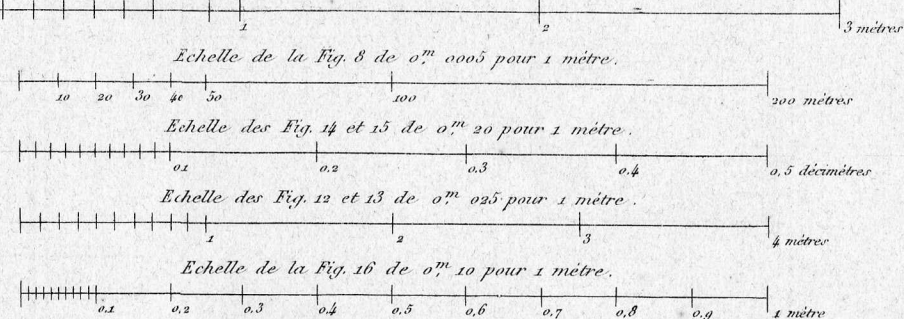 1 2 3 mètres
Echelle de la Fig. 8 de 0,m 0005 pour 1 mètre.
10 20 30 40 50 100 200 mètres
Echelle des Fig. 14 et 15 de 0,m 20 pour 1 mètre.
0,1 0,2 0,3 0,4 0,5 décimètres
Echelle des Fig. 12 et 13 de 0,m 025 pour 1 mètre.
1 2 3 4 mètres
Echelle de la Fig. 16 de 0,m 10 pour 1 mètre.
0,1 0,2 0,3 0,4 0,5 0,6 0,7 0,8 0,9 1 mètre